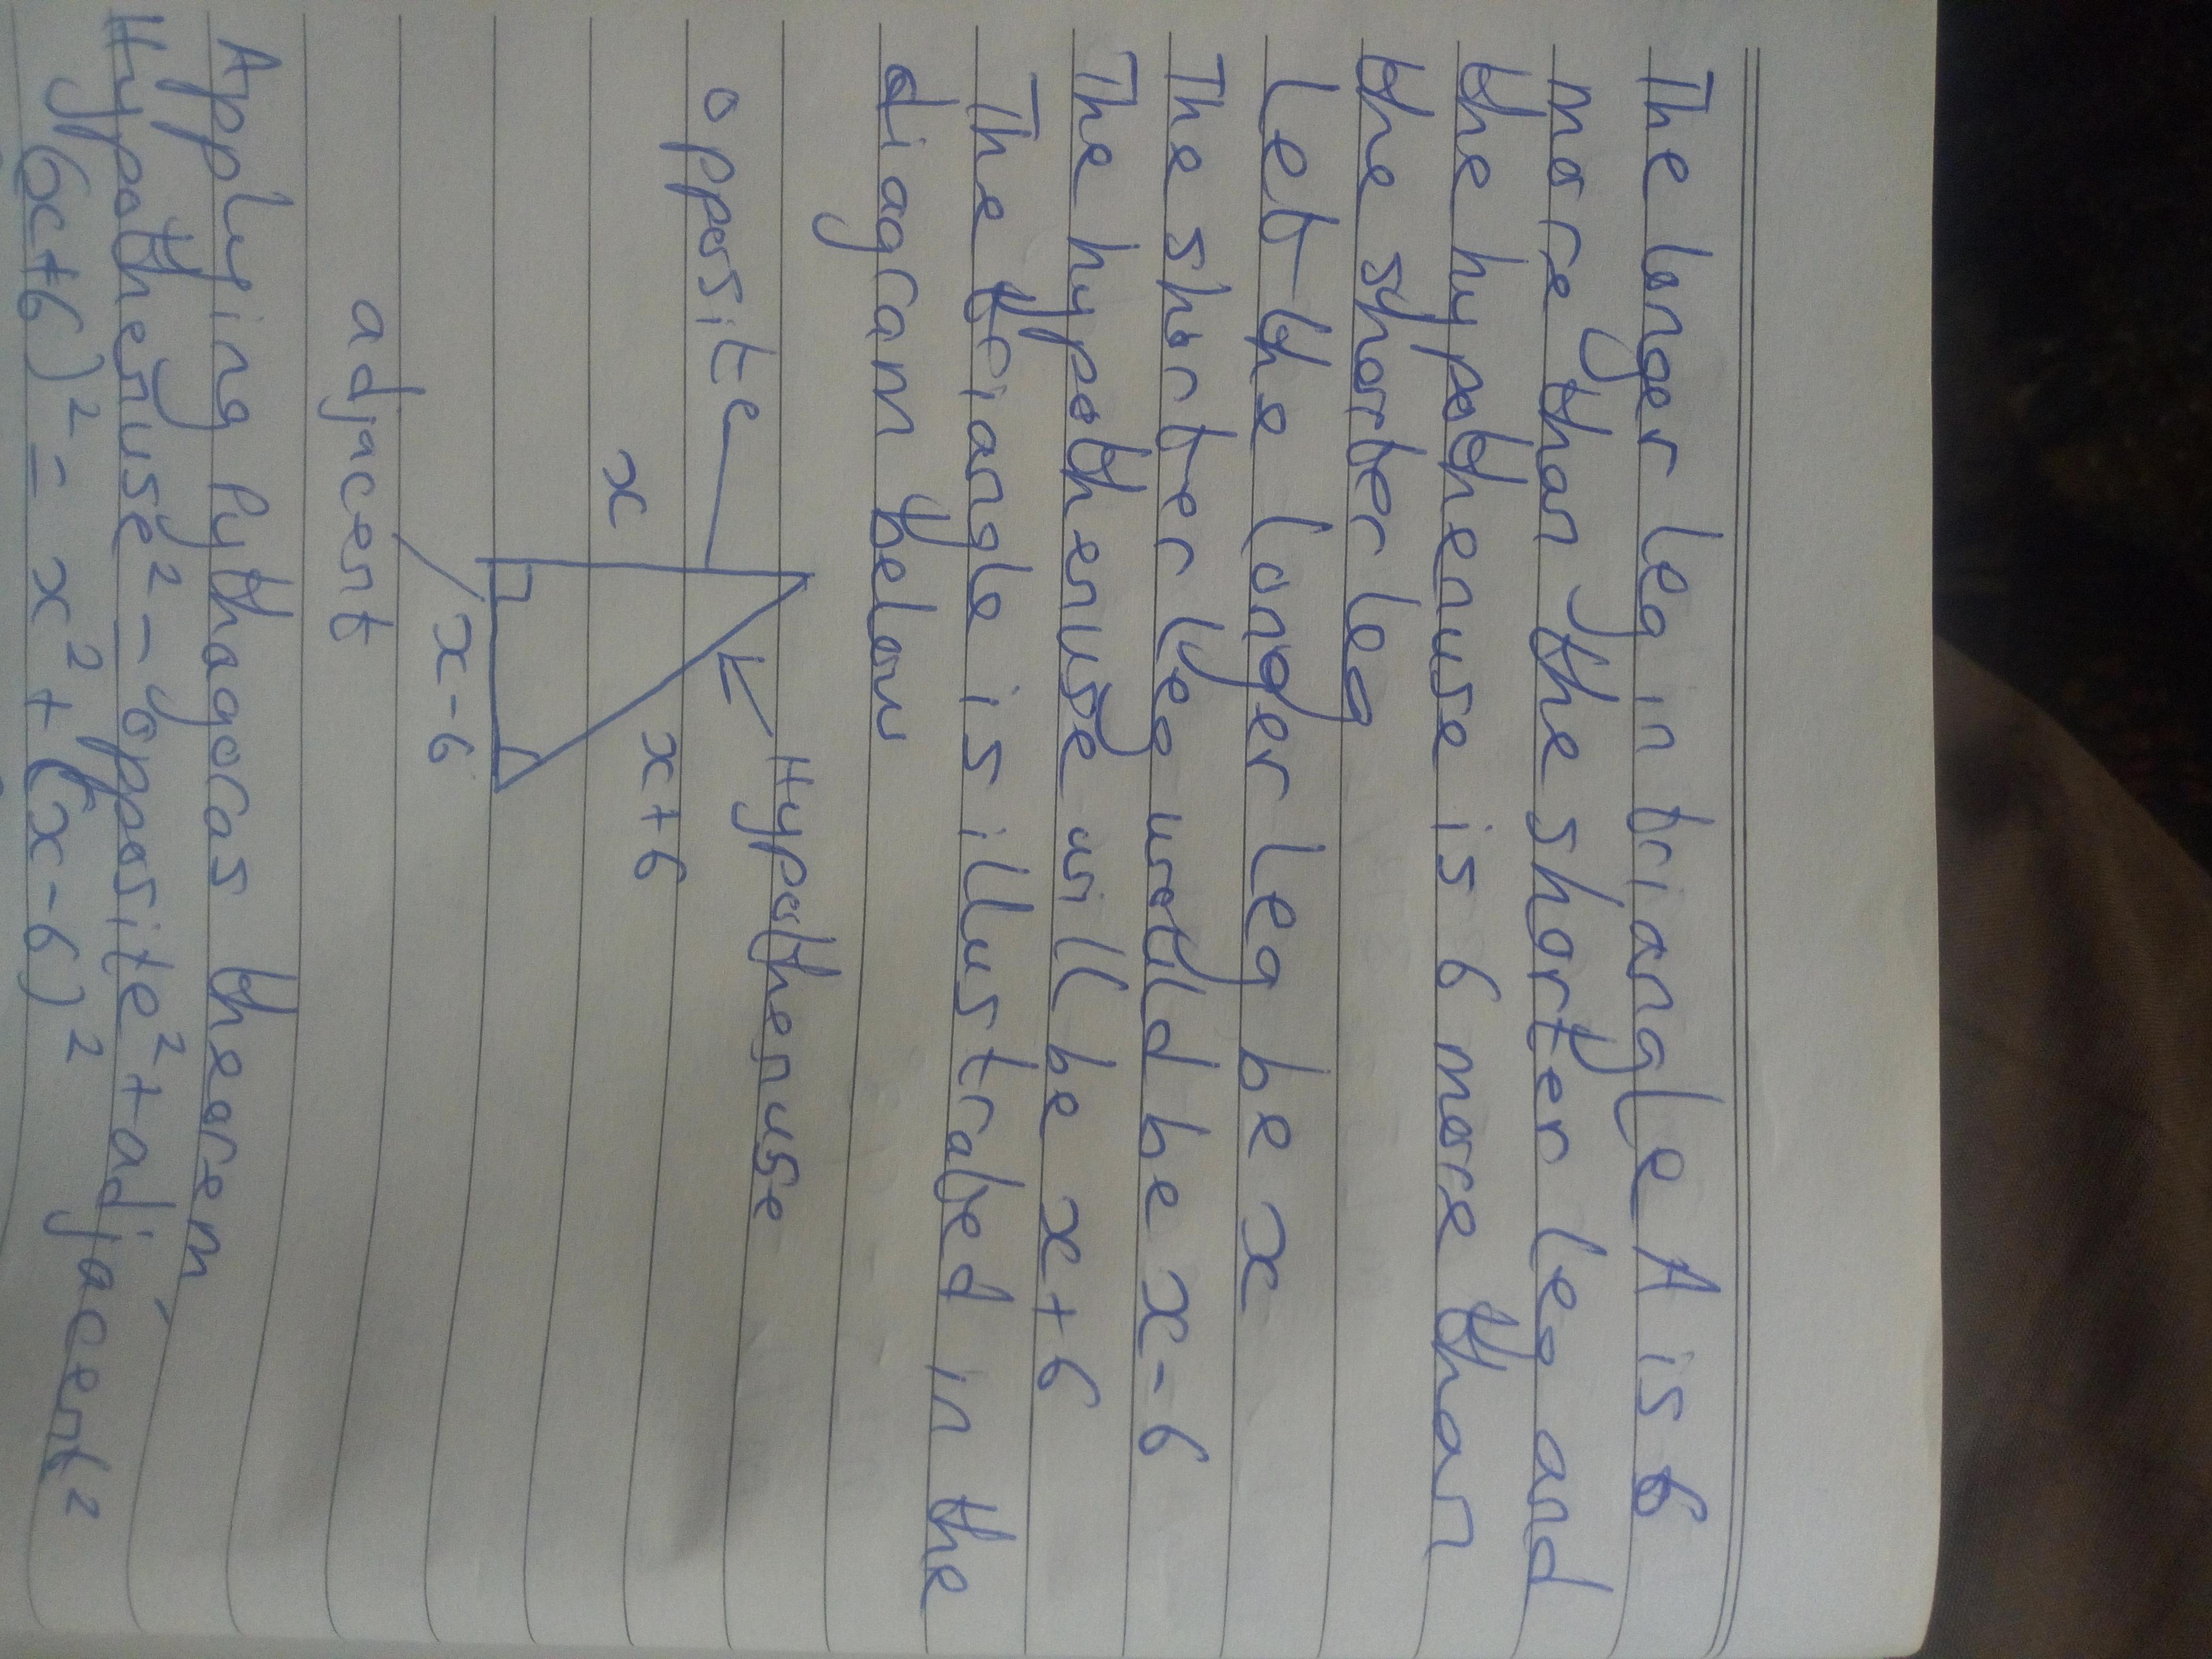 The longer leg in triangle A is 6
more than the shorter leg and
the hypothenuse is 6 more than
the shorter leg
Let the longer leg be x
The shorter leg would be x-6
The hypothenuse will be x+6
The triangle is illustrated in the
diagram below
opposite
Hypothenuse
x
x+6
x-6
adjacent
Applying Pythagoras theorem
Hypothenuse² = opposite² + adjacent²
(x+6)² = x² + (x-6)²